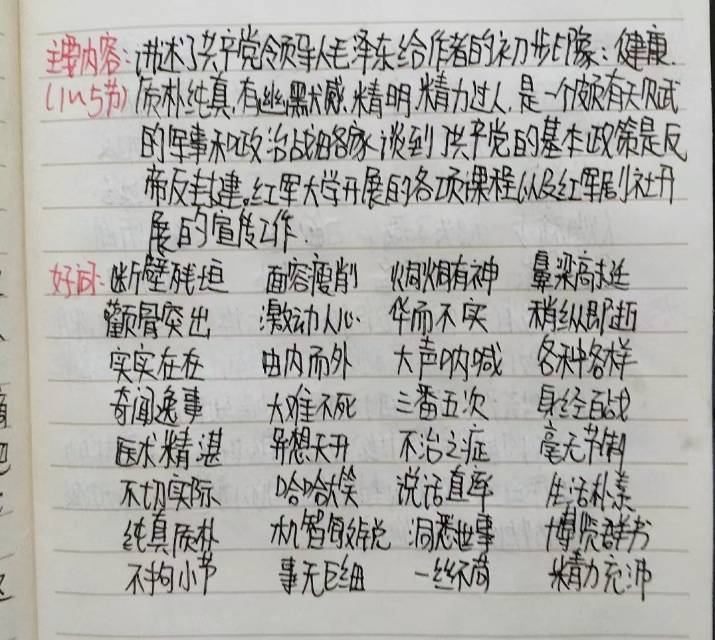 主要内容:讲述了共产党领导人毛泽东给作者的初步印象:健康.
(1~5节)质朴纯真,有幽默感,精明,精力过人,是一个颇有天赋
的军事和政治战略家,谈到了共产党的基本政策是反
帝反封建。红军大学开展的各项课程以及红军剧社开
展的宣传工作.
好词:断壁残垣 面容瘦削 炯炯有神 鼻梁高挺
颧骨突出 激动人心 华而不实 稍纵即逝
实实在在 由内而外 大声呐喊 各种各样
奇闻逸事 大难不死 三番五次 身经百战
医术精湛 异想天开 不治之症 毫无节制
不切实际 哈哈大笑 说话直率 生活朴素
纯真质朴 机智敏锐 洞悉世事 博览群书
不拘小节 事无巨细 一丝不苟 精力充沛